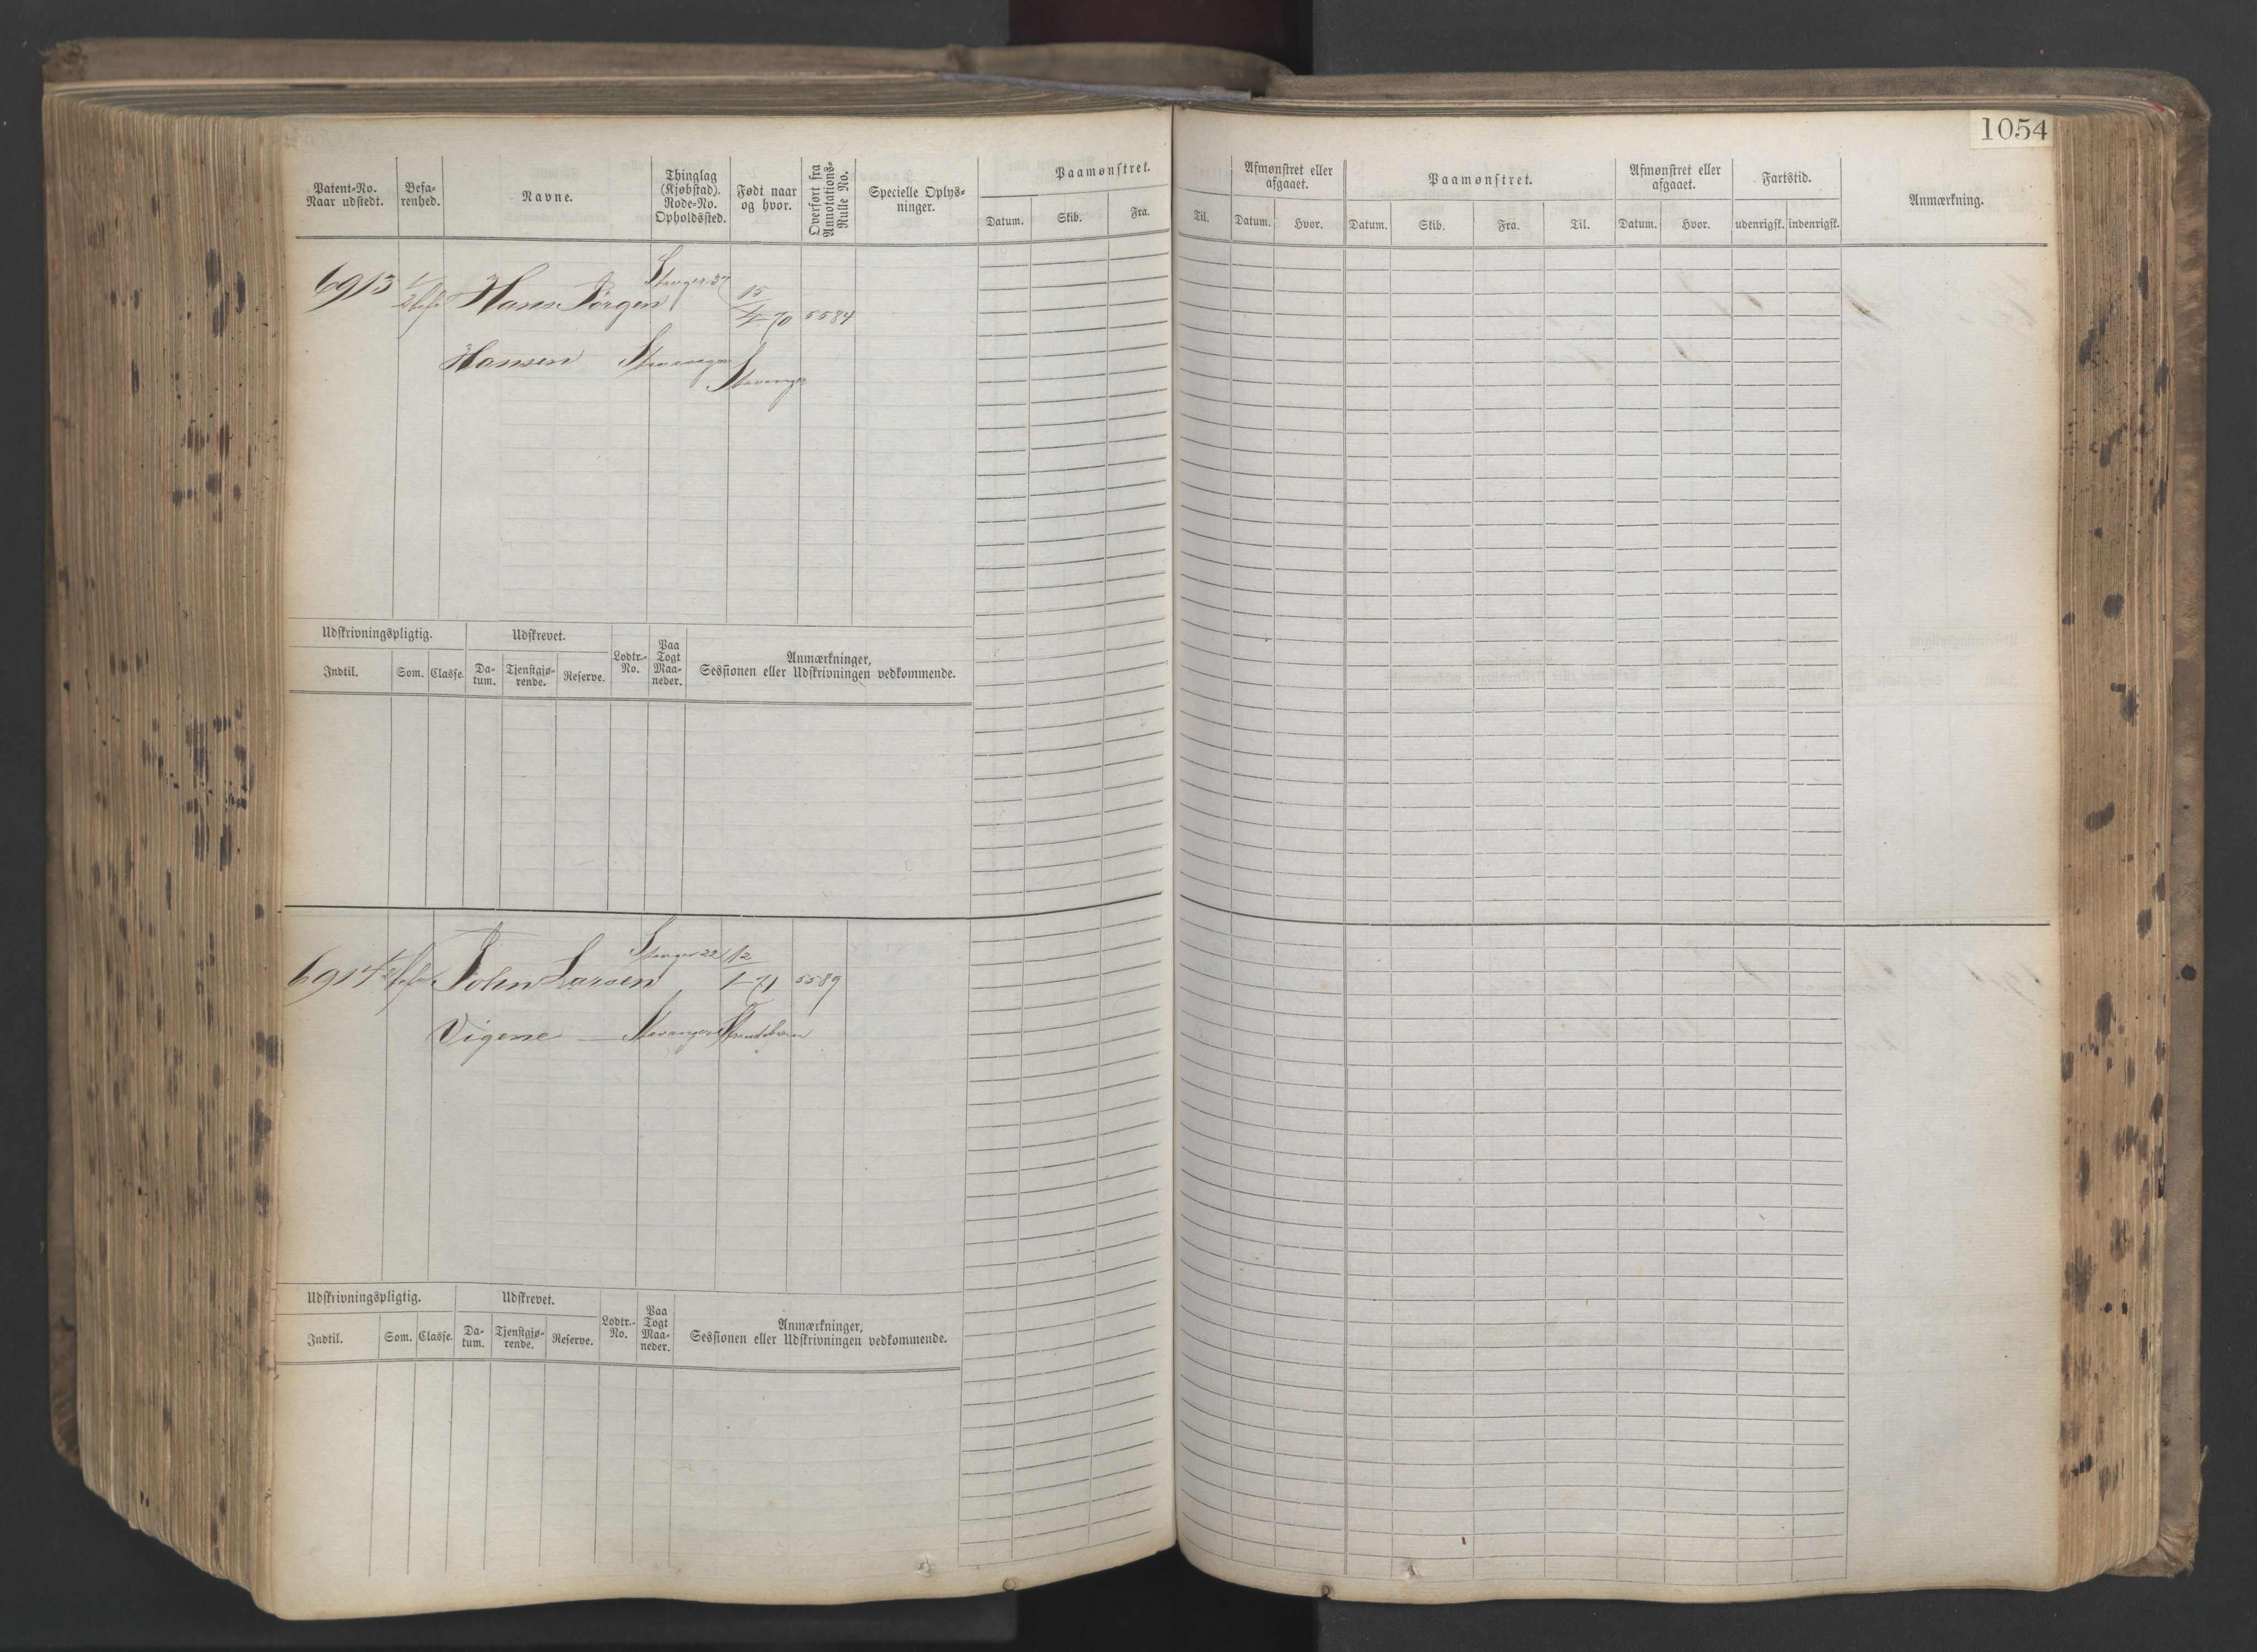 1054
Patent-No. Naar udstedt.
Befarenhed.
Navne.
Thinglag (Kjøbstad). Rode-No. Opholdssted.
Født naar og hvor.
Overført fra Annotations-Rulle No.
Specielle Oplysninger.
Paamønstret.
Datum. Skib. Fra.
Til.
Afmønstret eller afgaaet.
Datum. Hvor.
Paamønstret.
Datum. Skib. Fra. Til.
Afmønstret eller afgaaet.
Datum. Hvor.
Fartstid.
udenrigsk. indenrigsk.
Anmærkning.
6913 Hans Jörgen 15/4 70 5584
Hansen Stavanger Stavanger
Udskrivningspligtig. Udskrevet. Lodtr.-No. Paa Togt Maaneder. Anmærkninger,
Indtil. Som. Classe. Datum. Tjenstgjørende. Reserve. Sessionen eller Udskrivningen vedkommende.
6914 John Larsen 12/1 71 5589
Vigene Stavanger
Udskrivningspligtig. Udskrevet. Lodtr.-No. Paa Togt Maaneder. Anmærkninger,
Indtil. Som. Classe. Datum. Tjenstgjørende. Reserve. Sessionen eller Udskrivningen vedkommende.